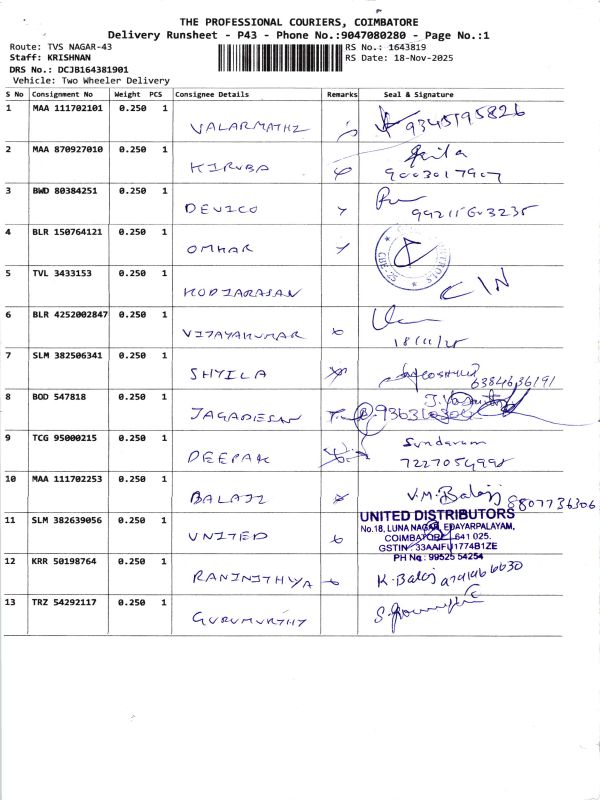 THE PROFESSIONAL COURIERS, COIMBATORE
Delivery Runsheet - P43 - Phone No.:9047080280 - Page No.:1
Route: TVS NAGAR-43 RS No.: 1643819
Staff: KRISHNAN RS Date: 18-Nov-2025
DRS No.: DCJB164381901
Vehicle: Two Wheeler Delivery
S No Consignment No Weight PCS Consignee Details Remarks Seal & Signature
1 MAA 111702101 0.250 1 VALARMATHI 9345195826
2 MAA 870927010 0.250 1 KIRUBA 9003017907
3 BWD 80384251 0.250 1 DEVICO
4 BLR 150764121 0.250 1 OMKAR CBE-25
5 TVL 3433153 0.250 1 KODIARASAN
6 BLR 4252002847 0.250 1 VIJAYAKUMAR 18/11/25
7 SLM 382506341 0.250 1 SHYILA 6384636191
8 BOD 547818 0.250 1 JAGADESAN
9 TCG 95000215 0.250 1 DEEPAK Sundaram
10 MAA 111702253 0.250 1 BALAJI V.M.Balaji 8807736306
11 SLM 382639056 0.250 1 UNITED UNITED DISTRIBUTORS
No.18, LUNA NAGAR, EDAYARPALAYAM,
COIMBATORE - 641 025.
GSTIN: 33AAIFU1774B1ZE
PH No: 99525 54254
12 KRR 50198764 0.250 1 RANJNITHYA K.Balaj
13 TRZ 54292117 0.250 1 GURUMURTHY